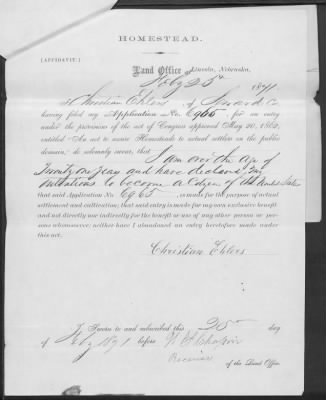 HOMESTEAD.
[AFFIDAVIT.]
Land Office at Lincoln, Nebraska,
Feby 25th 1871
I Christian Ehlers, of Seward Co
having filed my Application No. 6965, for an entry
under the provisions of the act of Congress approved May 20, 1862,
entitled "An act to secure Homesteads to actual settlers on the public
domain," do solemnly swear, that I am over the age of
Twenty one years and have declared my
intentions to become a Citizen of the United States
that said Application No. 6965, is made for the purpose of actual
settlement and cultivation; that said entry is made for my own exclusive benefit
and not directly nor indirectly for the benefit or use of any other person or per-
sons whomsoever; neither have I abandoned an entry heretofore made under
this act.
Christian Ehlers
Sworn to and subscribed this 25th day
of Feby 1871 before
Receiver
of the Land Office.